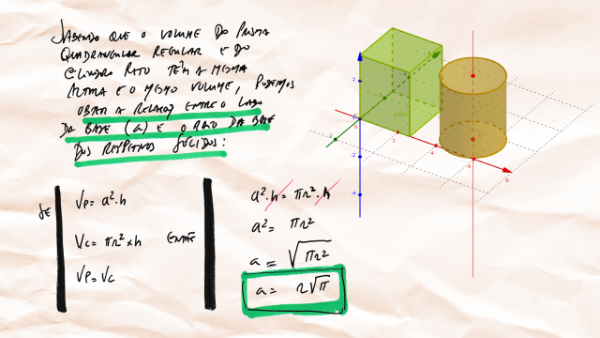 SABENDO QUE O VOLUME DO PRISMA
QUADRANGULAR REGULAR E DO
CILINDRO RETO TÊM A MESMA
ALTURA E O MESMO VOLUME, PODEMOS
OBTER A RELAÇÃO ENTRE O LADO
DA BASE (a) E O RAIO DA BASE
DOS RESPETIVOS SÓLIDOS:
SE
Vp = a².h
Vc = πr² × h
Vp = Vc
ENTÃO
a².h = πr².h
a² = πr²
a = √πr²
a = r√π